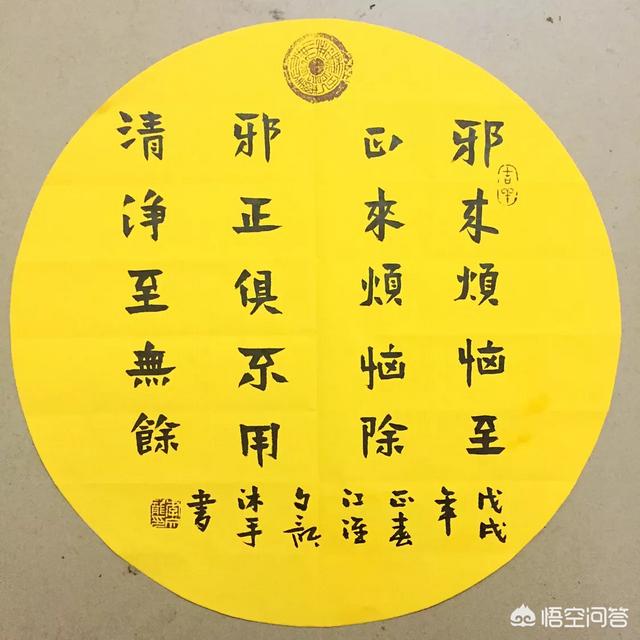 邪来煩惱至
正來煩惱除
邪正俱不用
清淨至無餘
戊戌
年
正春
江淮
沐手
書
悟空问答